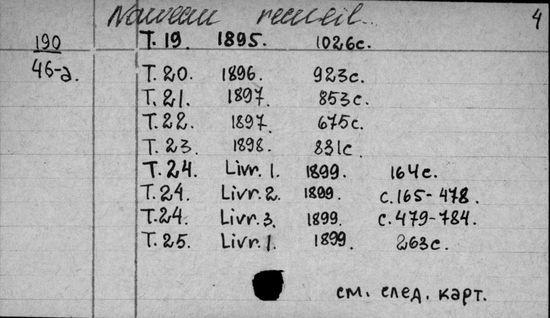 Nouveau recueil... 4
190 T. 19. 1895. 1026с.
46-а. T. 20. 1896. 923с.
T. 21. 1897. 853с.
T. 22. 1897. 675с.
T. 23. 1898. 831с
T. 24. Livr. 1. 1899. 164с.
T. 24. Livr. 2. 1899. с. 165-478.
T. 24. Livr. 3. 1899. с. 479-784.
T. 25. Livr. 1. 1899. 263с.
см. след. карт.